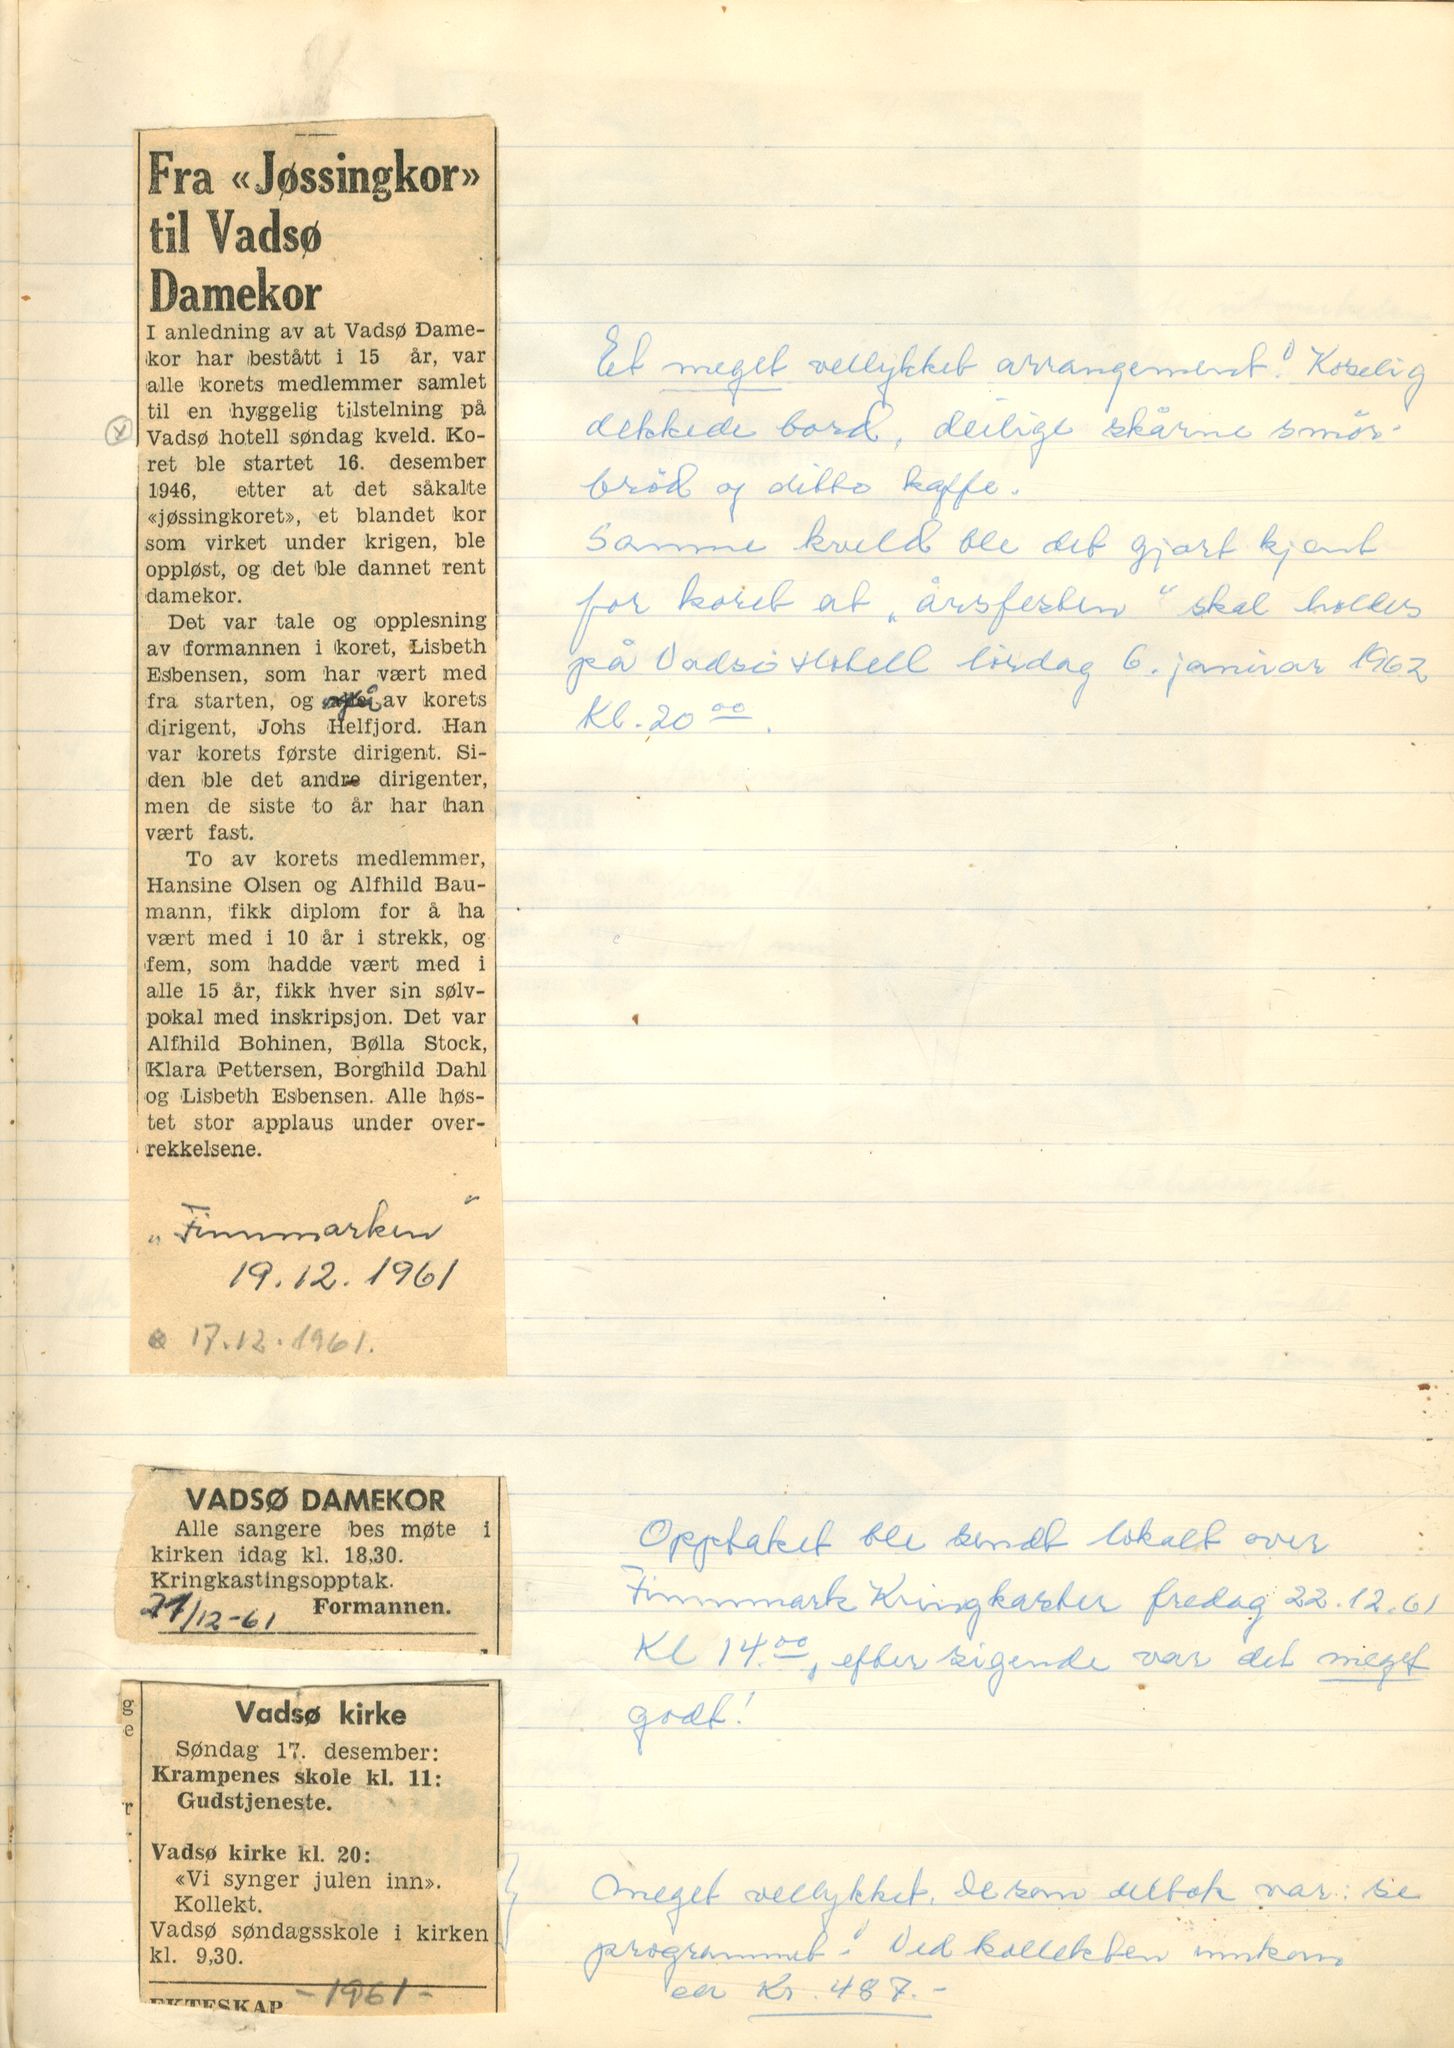 Fra «Jøssingkor»
til Vadsø
Damekor
I anledning av at Vadsø Dame-
kor har bestått i 15 år, var
alle korets medlemmer samlet
til en hyggelig tilstelning på
Vadsø hotell søndag kveld. Ko-
ret ble startet 16. desember
1946, etter at det såkalte
«jøssingkoret», et blandet kor
som virket under krigen, ble
oppløst, og det ble dannet rent
damekor.
Det var tale og opplesning
av formannen i koret, Lisbeth
Esbensen, som har vært med
fra starten, og av korets
dirigent, Johs Helfjord. Han
var korets første dirigent. Si-
den ble det andre dirigenter,
men de siste to år har han
vært fast.
To av korets medlemmer,
Hansine Olsen og Alfhild Bau-
mann, fikk diplom for å ha
vært med i 10 år i strekk, og
fem, som hadde vært med i
alle 15 år, fikk hver sin sølv-
pokal med inskripsjon. Det var
Alfhild Bohinen, Bølla Stock,
Klara Pettersen, Borghild Dahl
og Lisbeth Esbensen. Alle høs-
tet stor applaus under over-
rekkelsene.
„Finnmarken"
19.12.1961
17.12.1961.
Et meget vellykket arrangement! Koselig
dekkede bord, deilige skårne smör-
bröd og ditto kaffe.
Samme kveld ble det gjort kjent
for koret at „årsfesten" skal holdes
på Vadsö Hotell lördag 6. januar 1962
Kl. 20 00.
VADSØ DAMEKOR
Alle sangere bes møte i
kirken idag kl. 18,30.
Kringkastingsopptak.
Formannen.
21/12-61
Opptaket ble sendt lokalt over
Finnmark Kringkaster fredag 22.12.61
Kl 14.00, efter sigende var det meget
godt!
ge
r
.
Vadsø kirke
Søndag 17. desember:
Krampenes skole kl. 11:
Gudstjeneste.
Vadsø kirke kl. 20:
«Vi synger julen inn».
Kollekt.
Vadsø søndagsskole i kirken
kl. 9,30.
EKTESKAP
-1961-
Meget vellykket. De som deltok var: se
programmet! Ved kollekten innkom
ca Kr. 487.-